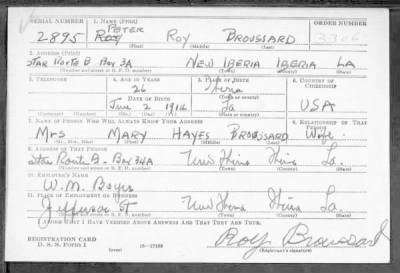 SERIAL NUMBER 1. NAME (Print) ORDER NUMBER
2895 PETER ROY ROY BROUSSARD 3306
(First) (Middle) (Last)
2. ADDRESS (Print)
STAR ROUTE B BOX 3A NEW IBERIA IBERIA LA
(Number and street or R. F. D. number) (Town) (County) (State)
3. TELEPHONE 4. AGE IN YEARS 5. PLACE OF BIRTH 6. COUNTRY OF CITIZENSHIP
26 Iberia
DATE OF BIRTH (Town or county)
June 2 1914 La USA
(Exchange) (No.) (Mo.) (Day) (Yr.) (State or country)
7. NAME OF PERSON WHO WILL ALWAYS KNOW YOUR ADDRESS 8. RELATIONSHIP OF THAT PERSON
Mrs MARY HAYES BROUSSARD Wife
(Mr., Mrs., Miss) (First) (Middle) (Last)
9. ADDRESS OF THAT PERSON
Star Route B. Box 34A New Iberia Iberia La.
(Number and street or R. F. D. number) (Town) (County) (State)
10. EMPLOYER'S NAME
W. M. Boyer
11. PLACE OF EMPLOYMENT OR BUSINESS
Jefferson St New Iberia Iberia La.
(Number and street or R. F. D. number) (Town) (County) (State)
I AFFIRM THAT I HAVE VERIFIED ABOVE ANSWERS AND THAT THEY ARE TRUE.
REGISTRATION CARD
D. S. S. Form 1 (over) 16-17105 Roy Broussard
(Registrant's signature)